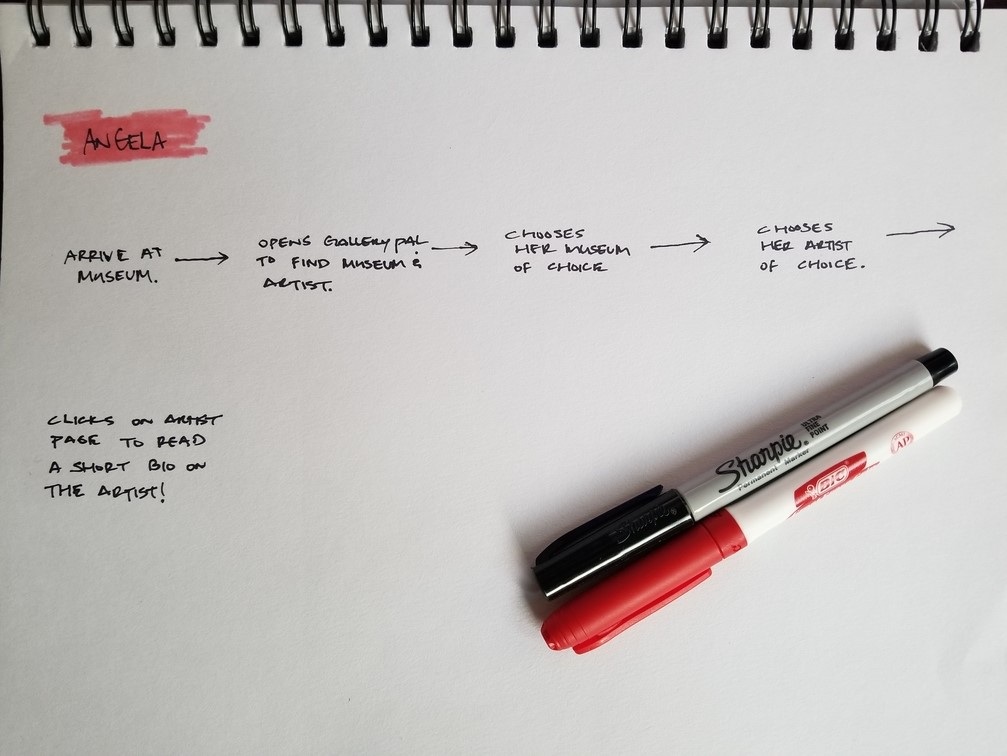 ANGELA
ARRIVE AT
MUSEUM.
OPENS GALLERY PAL
TO FIND MUSEUM &
ARTIST.
CHOOSES
HER MUSEUM
OF CHOICE
CHOOSES
HER ARTIST
OF CHOICE.
CLICKS ON ARTIST
PAGE TO READ
A SHORT BIO ON
THE ARTIST!
Sharpie®
Permanent Marker
ULTRA
FINE
POINT
BIC
AP